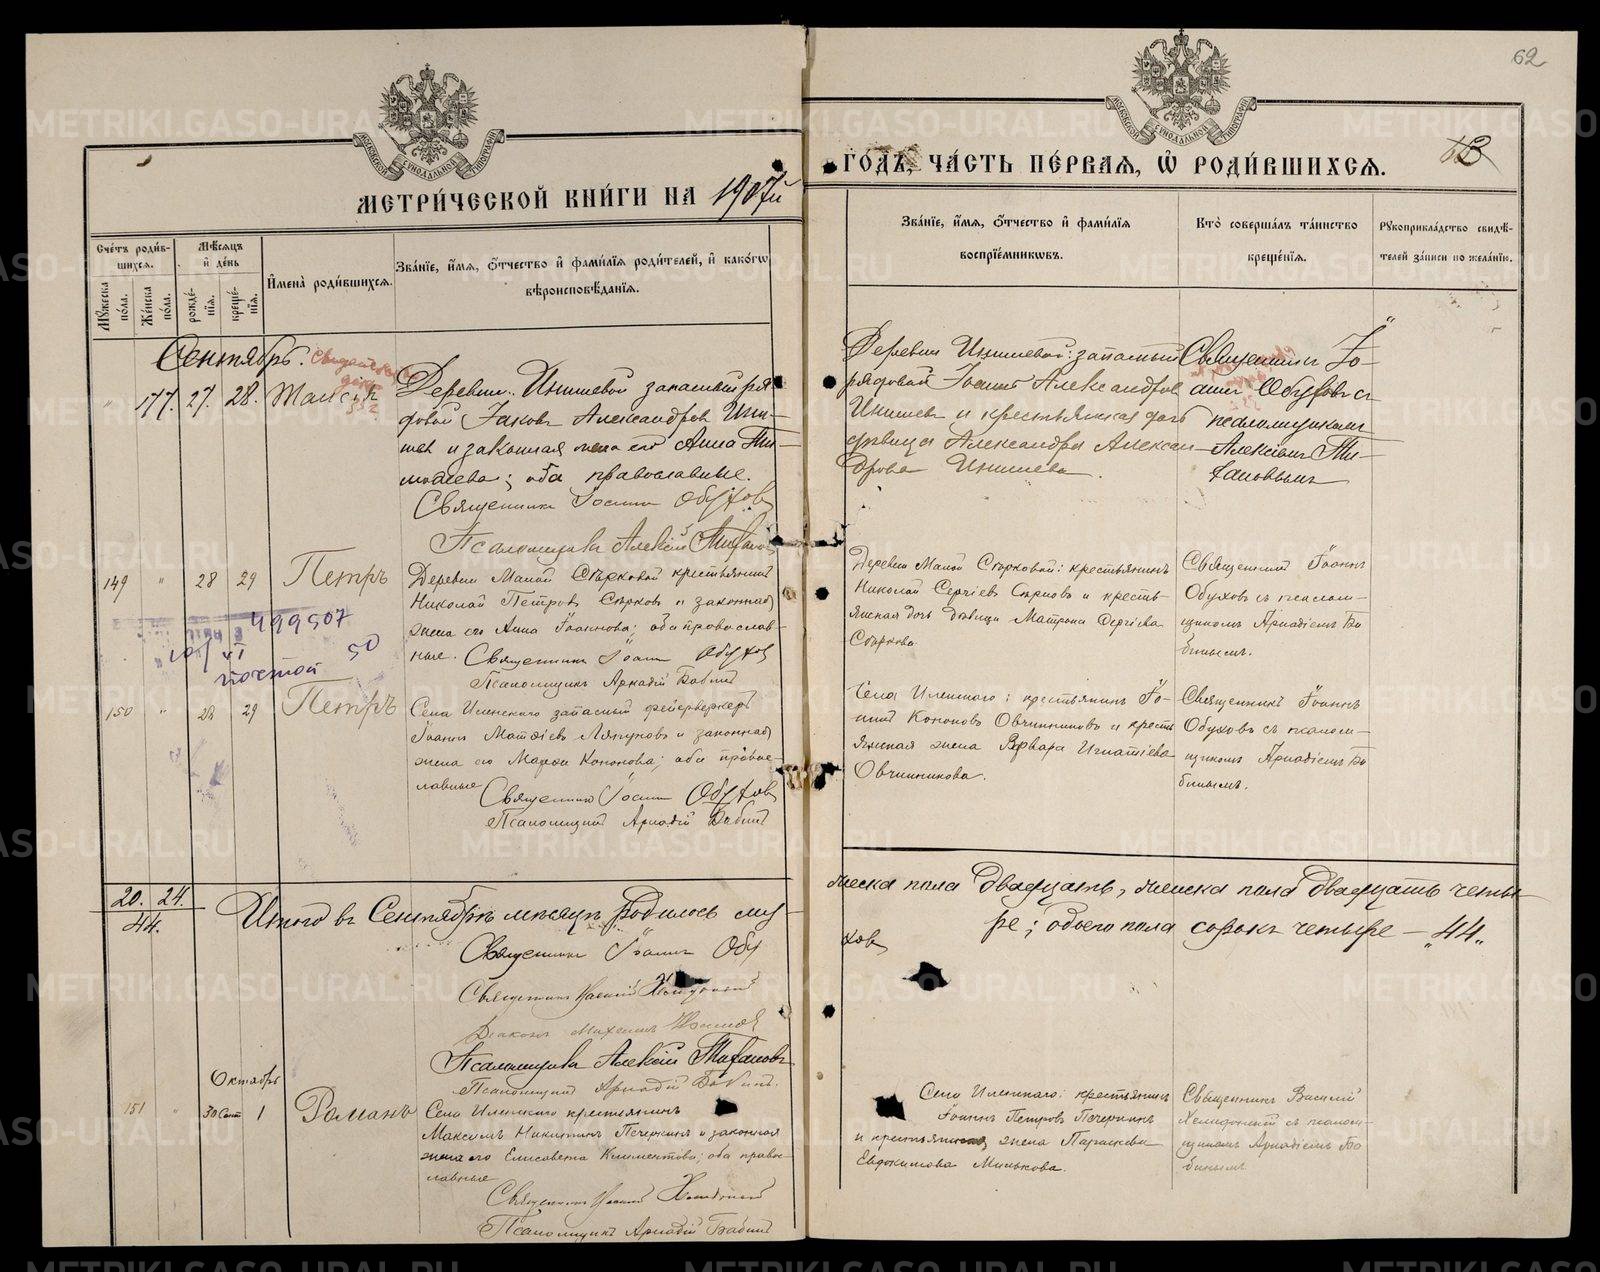 62
МОСКОВСКОЙ СѴНОДАЛЬНОЙ ТИПОГРАФІИ
МОСКОВСКОЙ СѴНОДАЛЬНОЙ ТИПОГРАФІИ
МЕТРИ́ЧЕСКОЙ КНИ́ГИ НА 1907й
ГО́ДЪ, ЧА́СТЬ ПЕ́РВАЯ, Ѡ҆ РОДИ́ВШИХСЯ.
Сче́тъ роди́в-
шихся.
Мꙋ́жеска по́ла.
Же́нска по́ла.
Мѣ́сяцъ
и҆ де́нь
рожде́-
нїя.
креще́-
нїя.
И҆мена̀ роди́вшихся.
Зва́нїе, и҆́мя, ѻ҆́тчество и҆ фами́лїя роди́телей, и҆ како́гѡ
вѣроисповѣ́данїя.
Зва́нїе, и҆́мя, ѻ҆́тчество и҆ фами́лїя
воспрїе́мникѡвъ.
Кто̀ соверша́лъ та́инство
креще́нїя.
Рꙋкоприкла́дство свидѣ́-
телей за́писи по жела́нїю.
Сентябрь.
" 177. 27. 28.
Деревни Инишевой запасный ря-
довой Іаковъ Александровъ Ини-
шев и законная жена его Анна Ти-
моѳеева; оба православные.
Священникъ Іоаннъ Обуховъ
Псаломщикъ Алексій Тифановъ
Деревни Инишевой: запасный
рядовой Іоаннъ Александров
Инишев и крестьянская дочь
дѣвица Александра Алексан-
дрова Инишева.
Священникъ Іо-
аннъ Обуховъ съ
псаломщикомъ
Алексіемъ Ти-
фановымъ
149 " 28 29 Петръ
Деревни Малой Сѣрковой крестьянинъ
Николай Петровъ Сѣрковъ и законная
жена его Анна Іоаннова; оба православ-
ные. Священникъ Іоаннъ Обухов
Псаломщикъ Аркадій Бабинъ
Деревни Малой Сѣрковой: крестьянинъ
Николай Сергіевъ Сѣрковъ и кресть-
янская дочь дѣвица Матрона Сергіева
Сѣркова
Священникъ Іоаннъ
Обуховъ съ псалом-
щикомъ Аркадіемъ Ба-
бинымъ.
499507
VI
50
150 " 28 29 Петръ
Села Иленскаго запасный фейерверкеръ
Іоаннъ Матѳіевъ Ляпуновъ и законная
жена его Марѳа Кононова; оба правос-
лавные Священникъ Іоаннъ Обухов
Псаломщикъ Аркадій Бабинъ
Села Иленскаго: крестьянинъ Іо-
аннъ Кононовъ Овчинниковъ и кресть-
янская жена Варвара Игнатіева
Овчинникова.
Священникъ Іоаннъ
Обуховъ съ псалом-
щикомъ Аркадіемъ Ба-
бинымъ.
20. 24.
44.
Итого въ Сентябрѣ мѣсяцѣ родилось му-
жеска пола двадцать, женска пола двадцать четы-
ре; обоего пола сорокъ четыре — "44"
Священникъ Іоаннъ Обу
ховъ
Священникъ Василій
Діаконъ Михаилъ
Псаломщикъ Алексій Тифановъ
Псаломщикъ Аркадій Бабинъ.
Октябрь
151 " 30 Сент 1 Романъ
Села Иленскаго крестьянинъ
Максимъ Никитинъ Печеркинъ и законная
жена его Елисавета Климентова; оба правос-
лавные
Священникъ Василій
Псаломщикъ Аркадій Бабинъ
Села Иленскаго: крестьянинъ
Іоаннъ Петровъ Печеркинъ
и крестьянская жена Параскева
Евдокимова Минькова.
Священникъ Василій
съ псалом-
щикомъ Аркадіемъ Ба-
бинымъ
METRIKI.GASO-URAL.RU